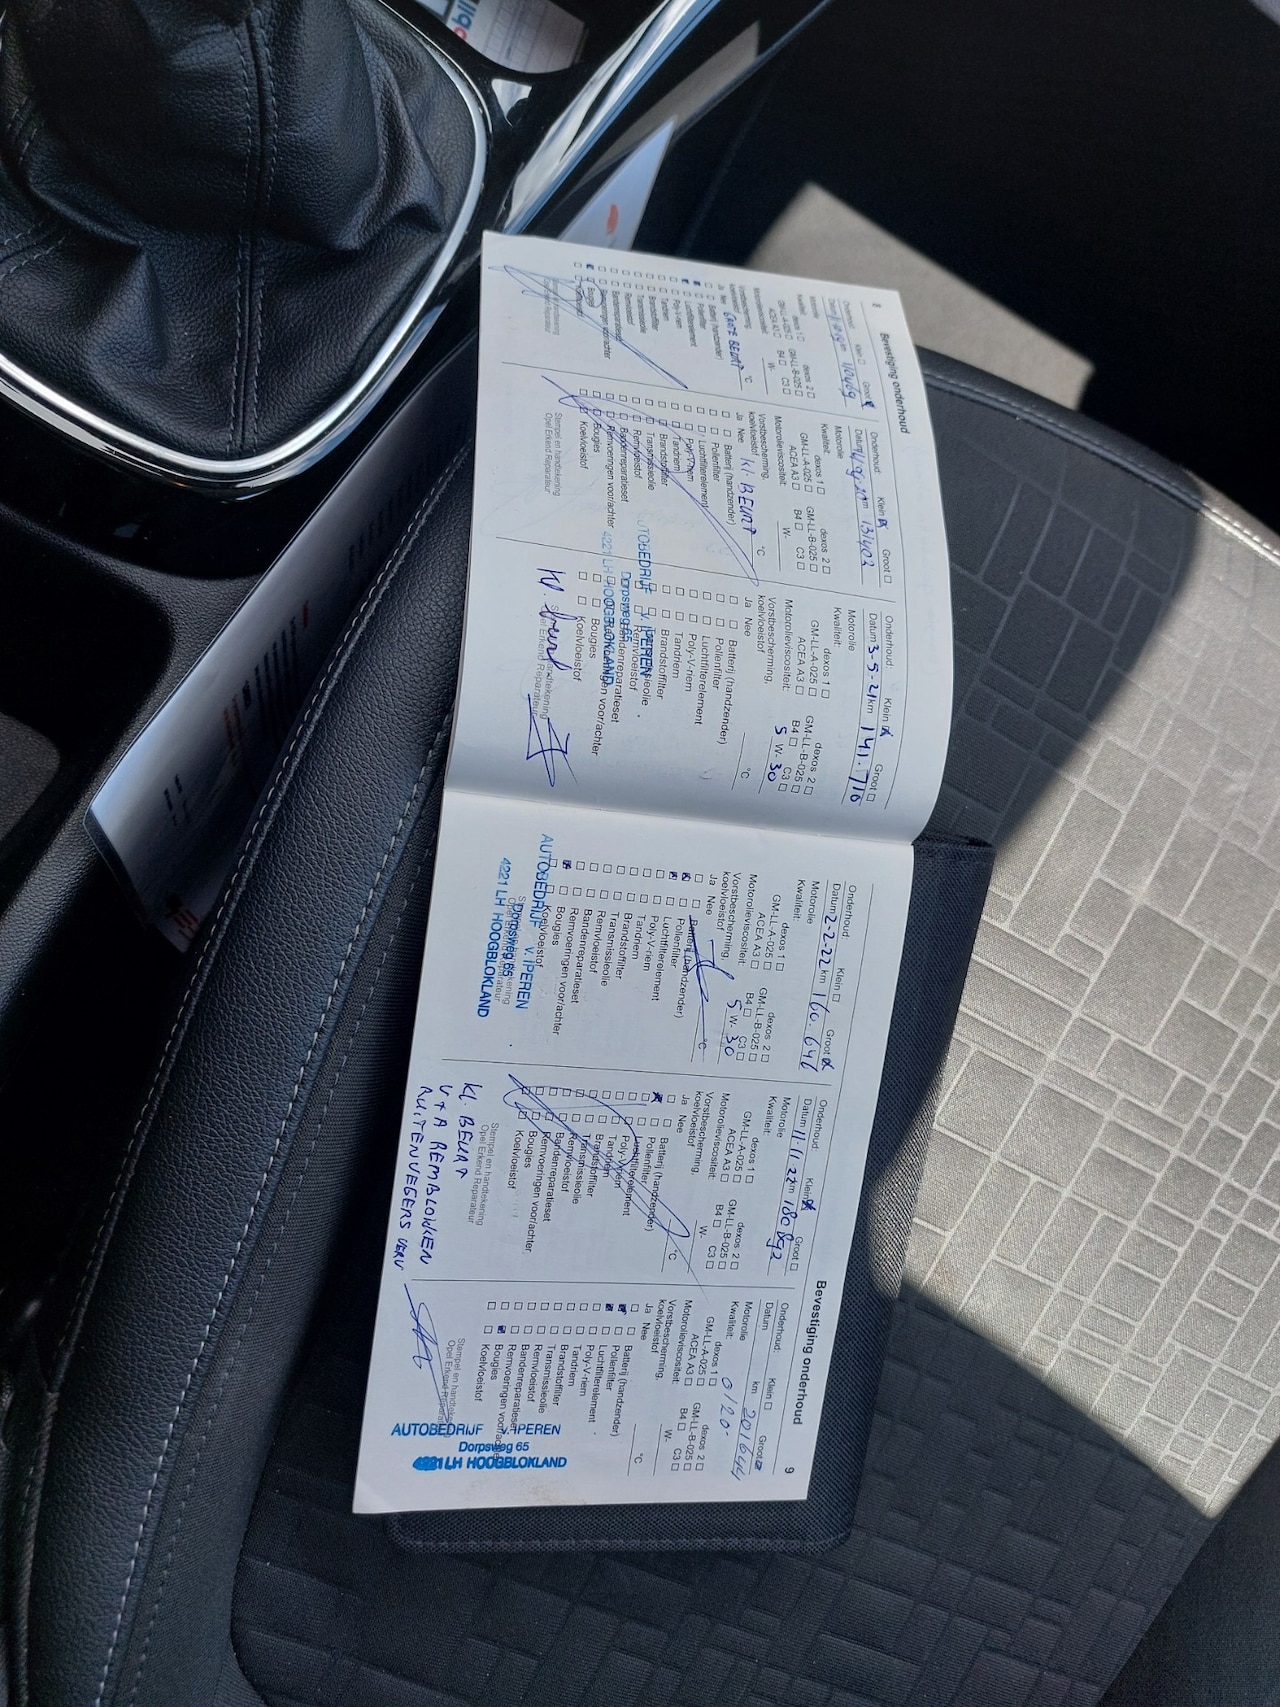 8
Bevestiging onderhoud
Onderhoud: Klein Groot
Datum km 110469
Motorolie
Kwaliteit: dexos 1 dexos 2
GM-LL-A-025 GM-LL-B-025
ACEA A3 B4 C3
Motorolieviscositeit: W-
Vorstbescherming,
koelvloeistof °C
GROTE BEURT
Ja Nee
Batterij (handzender)
Pollenfilter
Luchtfilterelement
Poly-V-riem
Tandriem
Brandstoffilter
Transmissieolie
Remvloeistof
Bandenreparatieset
Remvoeringen voor/achter
Bougies
Koelvloeistof
Onderhoud: Klein Groot
Datum km 131402
Motorolie
Kwaliteit: dexos 1 dexos 2
GM-LL-A-025 GM-LL-B-025
ACEA A3 B4 C3
Motorolieviscositeit: W-
Vorstbescherming,
koelvloeistof °C
Kl. BEURT
Ja Nee
Batterij (handzender)
Pollenfilter
Luchtfilterelement
Poly-V-riem
Tandriem
Brandstoffilter
Transmissieolie
Remvloeistof
Bandenreparatieset
Remvoeringen voor/achter
Bougies
Koelvloeistof
Stempel en handtekening
Opel Erkend Reparateur
Onderhoud: Klein Groot
Datum 3-5-21 km 141.710
Motorolie
Kwaliteit: dexos 1 dexos 2
GM-LL-A-025 GM-LL-B-025
ACEA A3 B4 C3
Motorolieviscositeit: 5 W- 30
Vorstbescherming,
koelvloeistof °C
Ja Nee
Batterij (handzender)
Pollenfilter
Luchtfilterelement
Poly-V-riem
Tandriem
Brandstoffilter
Transmissieolie
Remvloeistof
Bandenreparatieset
Remvoeringen voor/achter
Bougies
Koelvloeistof
AUTOBEDRIJF v. IPEREN
Dorpsweg 65
4221 LH HOOGBLOKLAND
Kl. beurt
Onderhoud: Klein Groot
Datum 2-2-22 km 160.646
Motorolie
Kwaliteit: dexos 1 dexos 2
GM-LL-A-025 GM-LL-B-025
ACEA A3 B4 C3
Motorolieviscositeit: 5 W- 30
Vorstbescherming,
koelvloeistof °C
Ja Nee
Batterij (handzender)
Pollenfilter
Luchtfilterelement
Poly-V-riem
Tandriem
Brandstoffilter
Transmissieolie
Remvloeistof
Bandenreparatieset
Remvoeringen voor/achter
Bougies
Koelvloeistof
AUTOBEDRIJF v. IPEREN
Dorpsweg 65
4221 LH HOOGBLOKLAND
Onderhoud: Klein Groot
Datum 11-11-22 km 180892
Motorolie
Kwaliteit: dexos 1 dexos 2
GM-LL-A-025 GM-LL-B-025
ACEA A3 B4 C3
Motorolieviscositeit: W-
Vorstbescherming,
koelvloeistof °C
Ja Nee
Batterij (handzender)
Pollenfilter
Luchtfilterelement
Poly-V-riem
Tandriem
Brandstoffilter
Transmissieolie
Remvloeistof
Bandenreparatieset
Remvoeringen voor/achter
Bougies
Koelvloeistof
Stempel en handtekening
Opel Erkend Reparateur
Kl. BEURT
V+A REMBLOKKEN
RUITENWISSERS VERV
Bevestiging onderhoud
9
Onderhoud: Klein Groot
Datum km 201644
Motorolie
Kwaliteit: dexos 1 dexos 2
GM-LL-A-025 GM-LL-B-025
ACEA A3 B4 C3
0/20-
Motorolieviscositeit: W-
Vorstbescherming,
koelvloeistof °C
Ja Nee
Batterij (handzender)
Pollenfilter
Luchtfilterelement
Poly-V-riem
Tandriem
Brandstoffilter
Transmissieolie
Remvloeistof
Bandenreparatieset
Remvoeringen voor/achter
Bougies
Koelvloeistof
Stempel en handtekening
Opel Erkend Reparateur
AUTOBEDRIJF v. IPEREN
Dorpsweg 65
4221 LH HOOGBLOKLAND